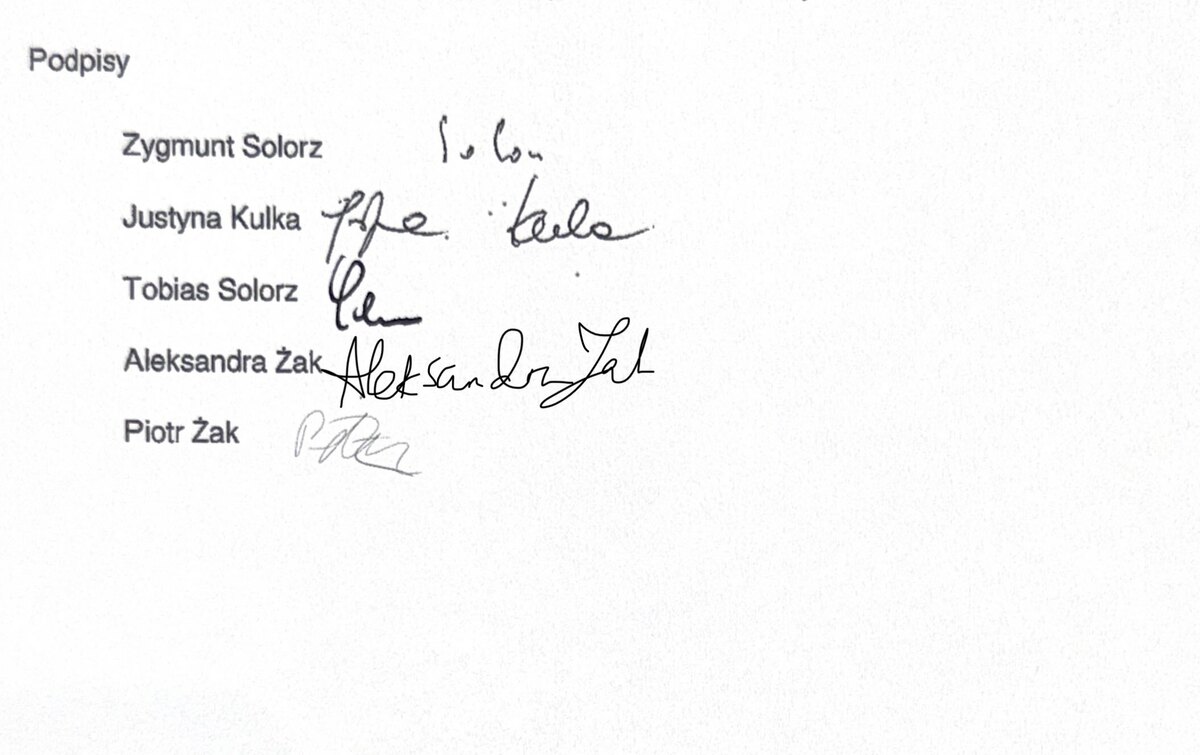 Podpisy
Zygmunt Solorz
Justyna Kulka
Tobias Solorz
Aleksandra Żak Aleksandra Żak
Piotr Żak